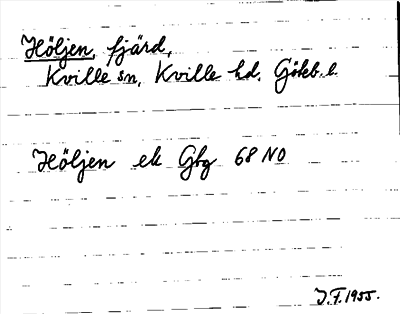 Höljen, fjärd,
Kville sn, Kville hd. Göteb. l.
Höljen ek Gbg 68 NO
J.F. 1955.